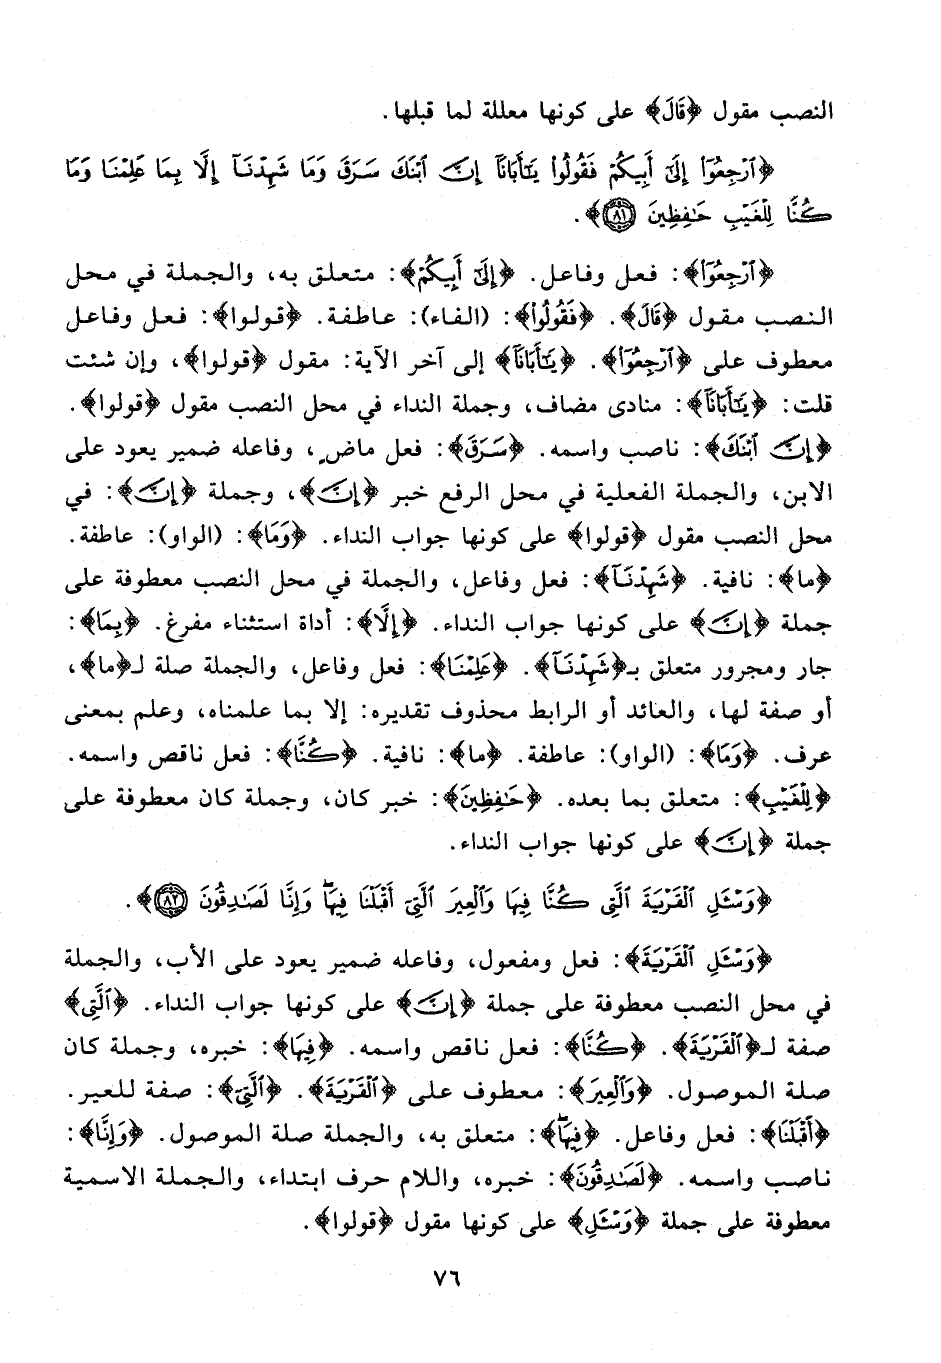 النصب مقول ﴿قَالَ﴾ على كونها معللة لما قبلها.
﴿ٱرْجِعُوٓا۟ إِلَىٰٓ أَبِيكُمْ فَقُولُوا۟ يَـٰٓأَبَانَآ إِنَّ ٱبْنَكَ سَرَقَ وَمَا شَهِدْنَآ إِلَّا بِمَا عَلِمْنَا وَمَا
كُنَّا لِلْغَيْبِ حَـٰفِظِينَ ﴿٨١﴾﴾.
﴿ٱرْجِعُوٓا۟﴾: فعل وفاعل. ﴿إِلَىٰٓ أَبِيكُمْ﴾: متعلق به، والجملة في محل
النصب مقول ﴿قَالَ﴾. ﴿فَقُولُوا۟﴾: (الفاء): عاطفة. ﴿قولوا﴾: فعل وفاعل
معطوف على ﴿ٱرْجِعُوٓا۟﴾. ﴿يَـٰٓأَبَانَآ﴾ إلى آخر الآية: مقول ﴿قولوا﴾، وإن شئت
قلت: ﴿يَـٰٓأَبَانَآ﴾: منادى مضاف، وجملة النداء في محل النصب مقول ﴿قولوا﴾.
﴿إِنَّ ٱبْنَكَ﴾: ناصب واسمه. ﴿سَرَقَ﴾: فعل ماضٍ، وفاعله ضمير يعود على
الابن، والجملة الفعلية في محل الرفع خبر ﴿إِنَّ﴾، وجملة ﴿إِنَّ﴾: في
محل النصب مقول ﴿قولوا﴾ على كونها جواب النداء. ﴿وَمَا﴾: (الواو): عاطفة.
﴿ما﴾: نافية. ﴿شَهِدْنَآ﴾: فعل وفاعل، والجملة في محل النصب معطوفة على
جملة ﴿إِنَّ﴾ على كونها جواب النداء. ﴿إِلَّا﴾: أداة استثناء مفرغ. ﴿بِمَا﴾:
جار ومجرور متعلق بـ﴿شَهِدْنَآ﴾. ﴿عَلِمْنَا﴾: فعل وفاعل، والجملة صلة لـ﴿ما﴾،
أو صفة لها، والعائد أو الرابط محذوف تقديره: إلا بما علمناه، وعلم بمعنى
عرف. ﴿وَمَا﴾: (الواو): عاطفة. ﴿ما﴾: نافية. ﴿كُنَّا﴾: فعل ناقص واسمه.
﴿لِلْغَيْبِ﴾: متعلق بما بعده. ﴿حَـٰفِظِينَ﴾: خبر كان، وجملة كان معطوفة على
جملة ﴿إِنَّ﴾ على كونها جواب النداء.
﴿وَسْـَٔلِ ٱلْقَرْيَةَ ٱلَّتِى كُنَّا فِيهَا وَٱلْعِيرَ ٱلَّتِىٓ أَقْبَلْنَا فِيهَاۖ وَإِنَّا لَصَـٰدِقُونَ ﴿٨٢﴾﴾.
﴿وَسْـَٔلِ ٱلْقَرْيَةَ﴾: فعل ومفعول، وفاعله ضمير يعود على الأب، والجملة
في محل النصب معطوفة على جملة ﴿إِنَّ﴾ على كونها جواب النداء. ﴿ٱلَّتِى﴾
صفة لـ﴿ٱلْقَرْيَةَ﴾. ﴿كُنَّا﴾: فعل ناقص واسمه. ﴿فِيهَا﴾: خبره، وجملة كان
صلة الموصول. ﴿وَٱلْعِيرَ﴾: معطوف على ﴿ٱلْقَرْيَةَ﴾. ﴿ٱلَّتِىٓ﴾: صفة للعير.
﴿أَقْبَلْنَا﴾: فعل وفاعل. ﴿فِيهَاۖ﴾: متعلق به، والجملة صلة الموصول. ﴿وَإِنَّا﴾:
ناصب واسمه. ﴿لَصَـٰدِقُونَ﴾: خبره، واللام حرف ابتداء، والجملة الاسمية
معطوفة على جملة ﴿وَسْـَٔلِ﴾ على كونها مقول ﴿قولوا﴾.
٧٦